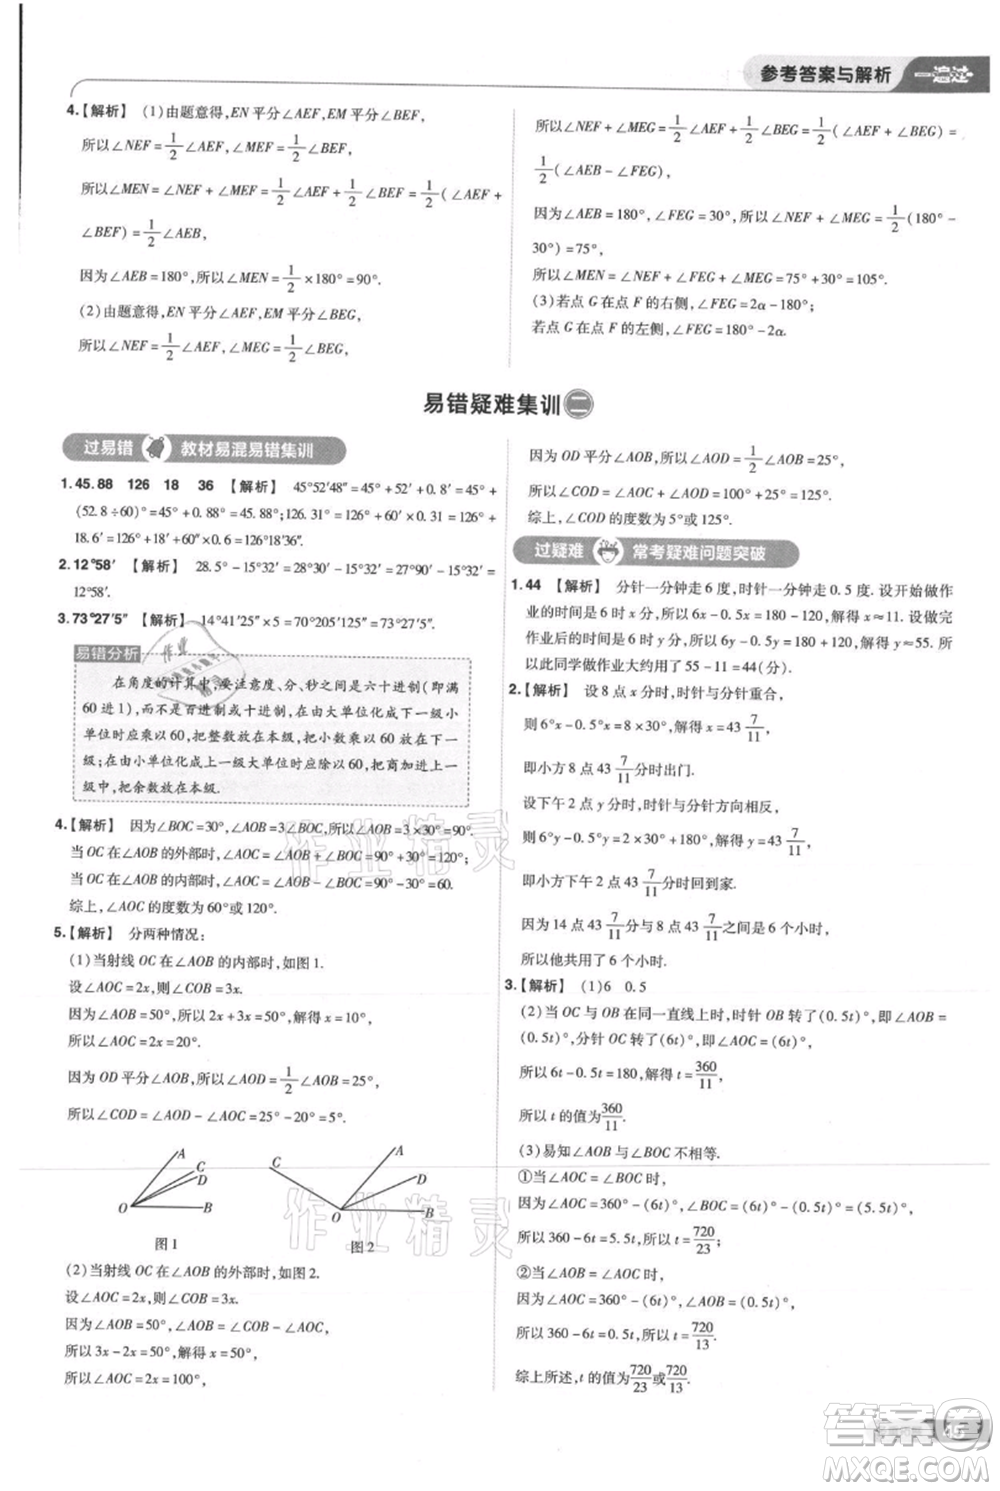 参考答案与解析 一遍过
4.【解析】 (1)由题意得,EN 平分∠AEF,EM 平分∠BEF,
所以∠NEF = 1/2 ∠AEF,∠MEF = 1/2 ∠BEF,
所以∠MEN = ∠NEF + ∠MEF = 1/2 ∠AEF + 1/2 ∠BEF = 1/2 (∠AEF +
∠BEF) = 1/2 ∠AEB,
因为∠AEB = 180°,所以∠MEN = 1/2 ×180° = 90°.
(2)由题意得,EN 平分∠AEF,EM 平分∠BEG,
所以∠NEF = 1/2 ∠AEF,∠MEG = 1/2 ∠BEG,
所以∠NEF + ∠MEG = 1/2 ∠AEF + 1/2 ∠BEG = 1/2 (∠AEF + ∠BEG) =
1/2 (∠AEB - ∠FEG),
因为∠AEB = 180°,∠FEG = 30°,所以∠NEF + ∠MEG = 1/2 (180° -
30°) = 75°,
所以∠MEN = ∠NEF + ∠FEG + ∠MEG = 75° + 30° = 105°.
(3)若点 G 在点 F 的右侧,∠FEG = 2α - 180°;
若点 G 在点 F 的左侧,∠FEG = 180° - 2α.
易错疑难集训 二
过易错 教材易混易错集训
1.45.88 126 18 36 【解析】 45°52′48″ = 45° + 52′ + 0.8′ = 45° +
(52.8÷60)° = 45° + 0.88° = 45.88°;126.31° = 126° +
18.6′ = 126° + 18′ + 60″×0.6 = 126°18′36″.
2.12°58′ 【解析】 28.5° - 15°32′ = 28°30′ - 15°32′ =
12°58′.
3.73°27′5″ 【解析】 14°41′25″×5 = 70°205′125″ = 73°27′5″.
易错分析
在角度的计算中,要注意度、分、秒之间是六十进制(即满
60 进 1),而不是百进制或十进制,在由大单位化成下一级小
单位时应乘以 60,把整数放在本级,把小数乘以 60 放在下一
级;在由小单位化成上一级大单位时应除以 60,把商加进上一
级中,把余数放在本级.
4.【解析】 因为∠BOC = 30°,∠AOB = 3∠BOC,所以∠AOB = 3×30° = 90°.
当 OC 在∠AOB 的外部时,∠AOC = ∠AOB + ∠BOC = 90° + 30° = 120°;
当 OC 在∠AOB 的内部时,∠AOC = ∠AOB - ∠BOC = 90° - 30° = 60.
综上,∠AOC 的度数为 60°或 120°.
5.【解析】 分两种情况:
(1)当射线 OC 在∠AOB 的内部时,如图 1.
设∠AOC = 2x,则∠COB = 3x.
因为∠AOB = 50°,所以 2x + 3x = 50°,解得 x = 10°,
所以∠AOC = 2x = 20°.
因为 OD 平分∠AOB,所以∠AOD = 1/2 ∠AOB = 25°,
所以∠COD = ∠AOD - ∠AOC = 25° - 20° = 5°.
A C D B O
图 1
C A D B O
图 2
(2)当射线 OC 在∠AOB 的外部时,如图 2.
设∠AOC = 2x,则∠COB = 3x.
因为∠AOB = 50°,∠AOB = ∠COB - ∠AOC,
所以 3x - 2x = 50°,解得 x = 50°,
所以∠AOC = 2x = 100°,
因为 OD 平分∠AOB,所以∠AOD = 1/2 ∠AOB = 25°,
所以∠COD = ∠AOC + ∠AOD = 100° + 25° = 125°.
综上,∠COD 的度数为 5°或 125°.
过疑难 常考疑难问题突破
1.44 【解析】 分针一分钟走 6 度,时针一分钟走 0.5 度.设开始做作
业的时间是 6 时 x 分,所以 6x - 0.5x = 180 - 120,解得 x≈11.设做完
作业后的时间是 6 时 y 分,所以 6y - 0.5y = 180 + 120,解得 y≈55,所
以此同学做作业大约用了 55 - 11 = 44(分).
2.【解析】 设 8 点 x 分时,时针与分针重合,
则 6°x - 0.5°x = 8×30°,解得 x = 43 7/11,
即小方 8 点 43 7/11 分时出门.
设下午 2 点 y 分时,时针与分针方向相反,
则 6°y - 0.5°y = 2×30° + 180°,解得 y = 43 7/11,
即小方下午 2 点 43 7/11 分时回到家.
因为 14 点 43 7/11 分与 8 点 43 7/11 分之间是 6 个小时,
所以他共用了 6 个小时.
3.【解析】 (1)6 0.5
(2)当 OC 与 OB 在同一直线上时,时针 OB 转了(0.5t)°,即∠AOB =
(0.5t)°,分针 OC 转了(6t)°,即∠AOC = (6t)°.
所以 6t - 0.5t = 180,解得 t = 360/11,
所以 t 的值为 360/11.
(3)易知∠AOB 与∠BOC 不相等.
①当∠AOC = ∠BOC 时,
因为∠AOC = 360° - (6t)°,∠BOC = (6t)° - (0.5t)° = (5.5t)°,
所以 360 - 6t = 5.5t,所以 t = 720/23;
②当∠AOC = ∠AOB 时,
因为∠AOC = 360° - (6t)°,∠AOB = (0.5t)°,
所以 360 - 6t = 0.5t,所以 t = 720/13.
综上所述,t 的值为 720/23 或 720/13.
作业精灵
作业精灵
答案圈
MXQE.COM
45